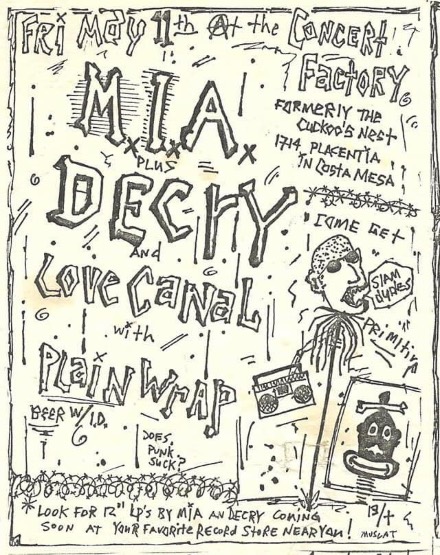 Fri May 11th At the Concert
Factory
Formerly the
Cuckoo's Nest
1714 Placentia
in Costa Mesa
M.I.A.
Plus
Decry
and
Love Canal
with
Plain Wrap
Beer w/ I.D.
Does
Punk
Suck?
"Come Get
Slam
dudes
Primitive
*Look for 12" LP's by MIA an Decry coming
soon at your favorite record store near you!
Muscat